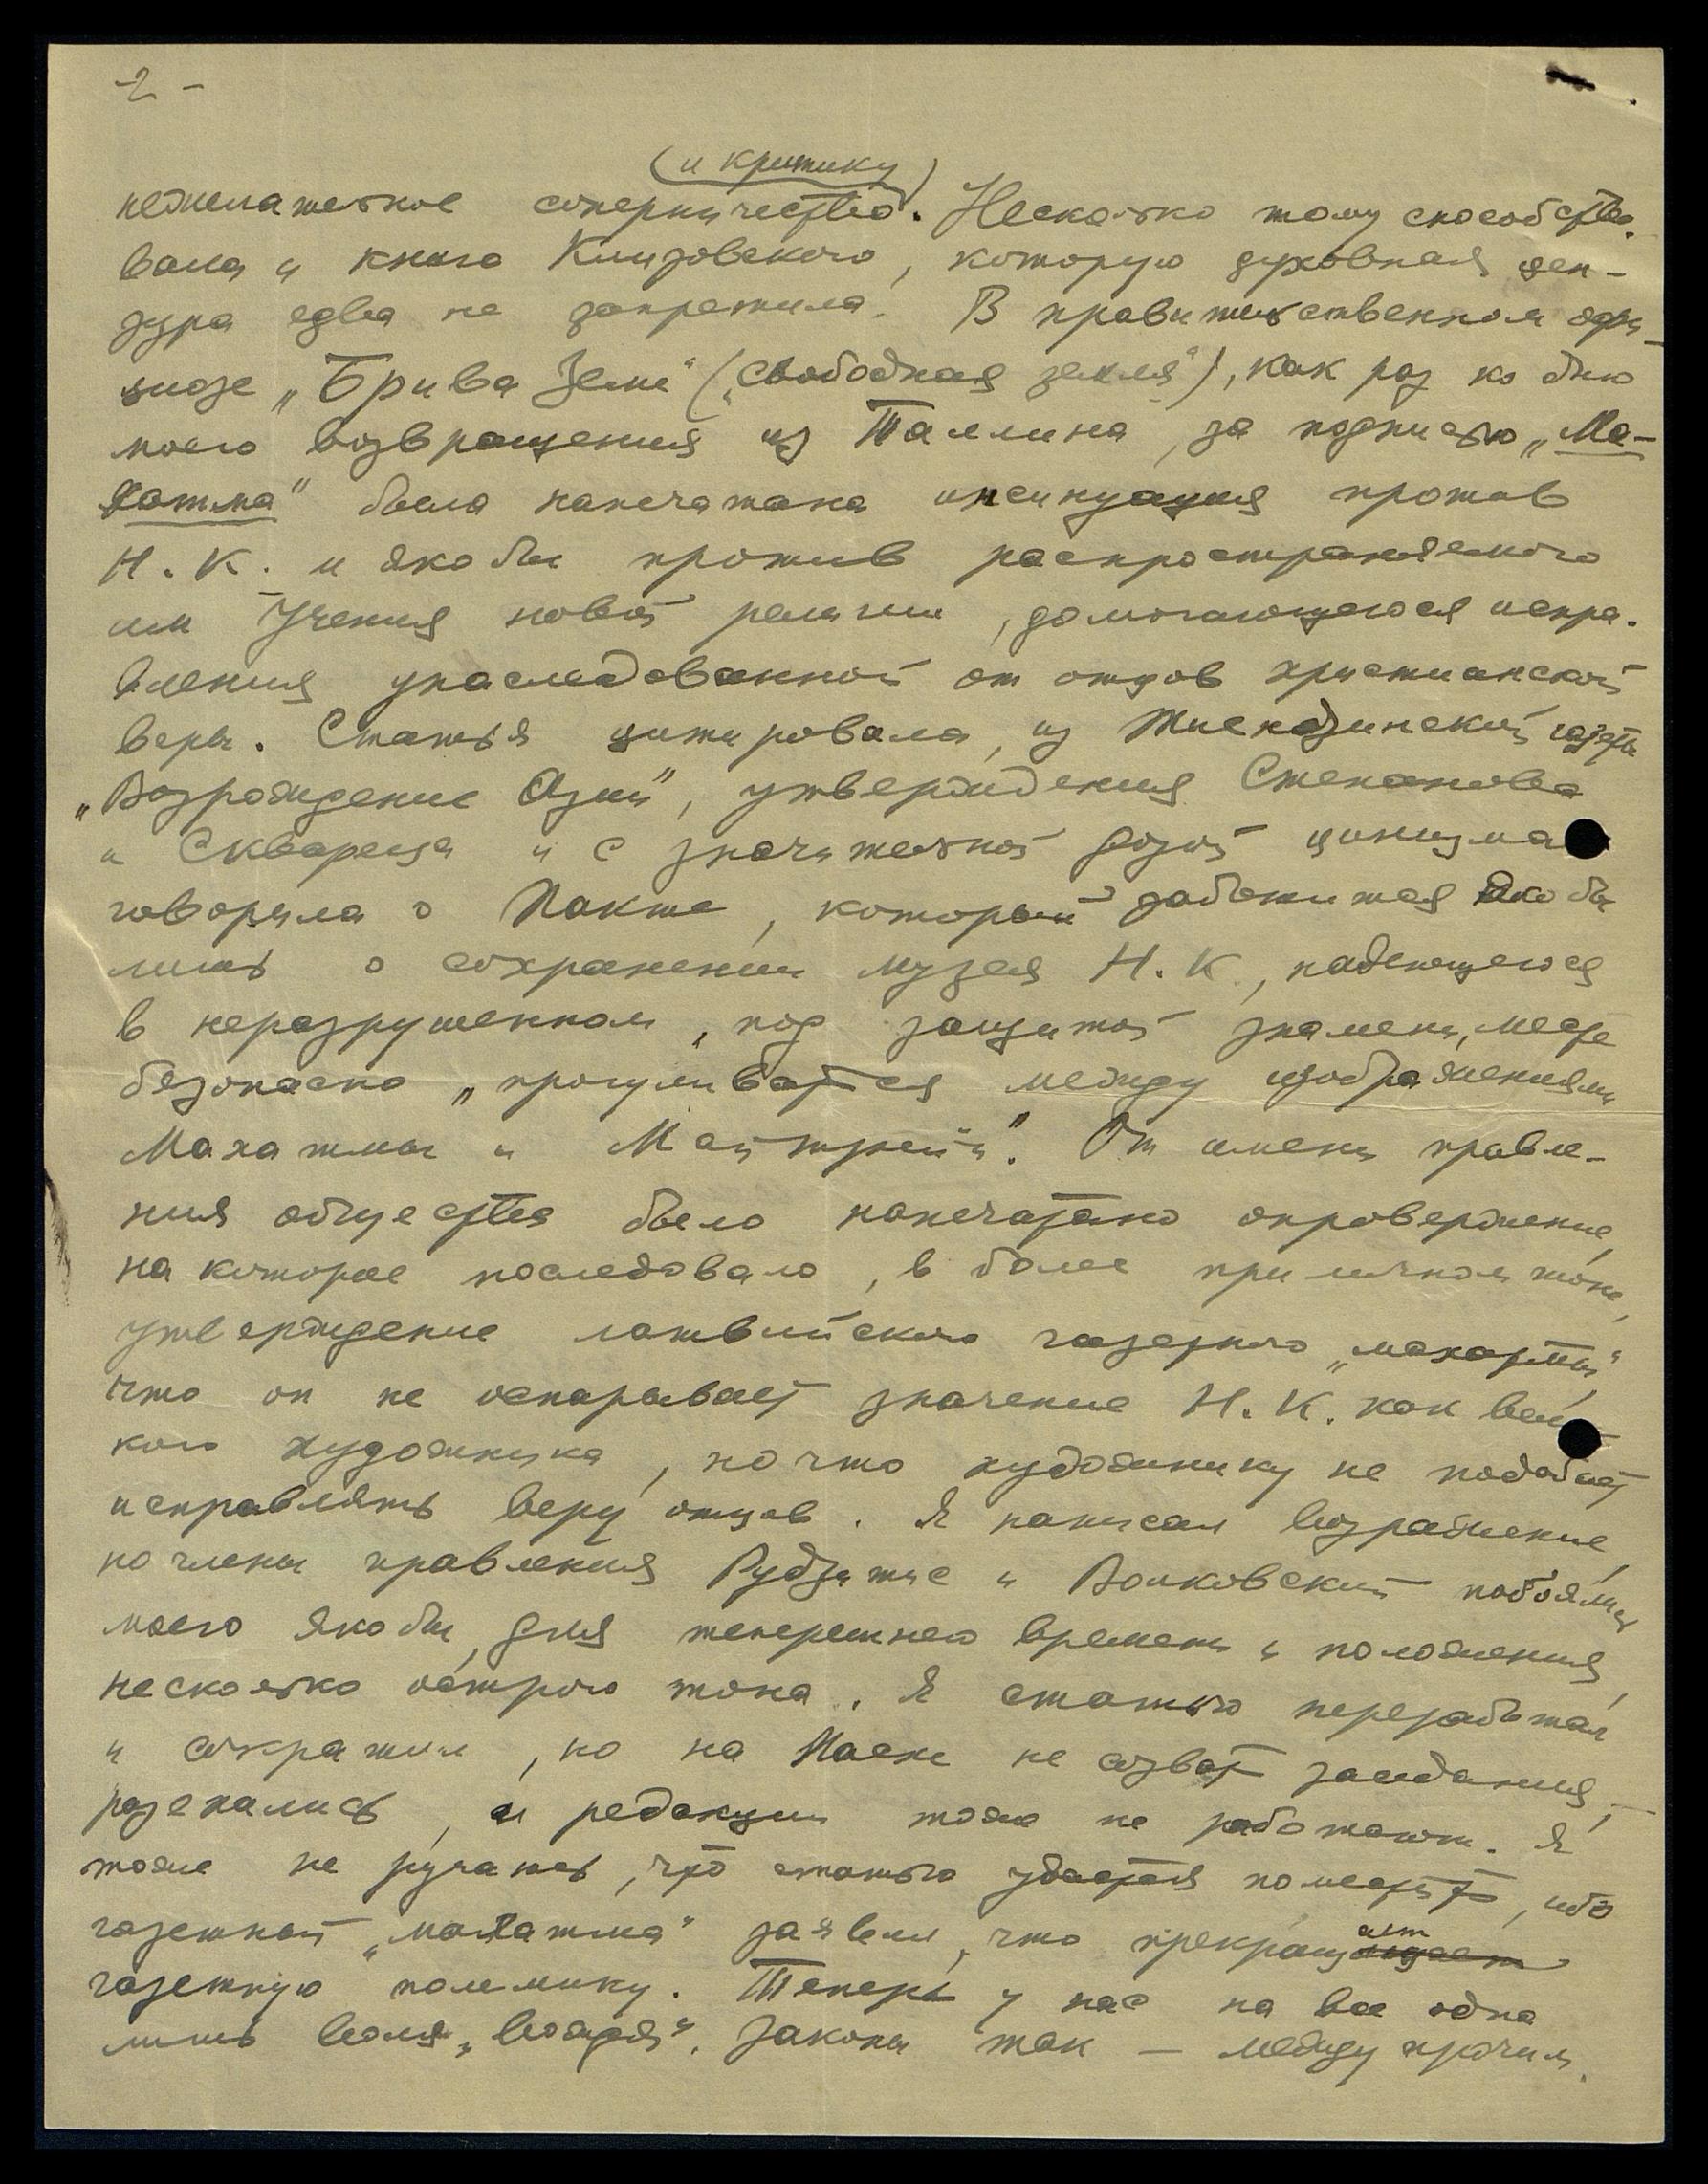 -2-
(и критику)
нежелательное соперничество. Несколько тому способство-
вала и книга Клизовского, которую духовная цен-
зура едва не запретила. В правительственном официозе
циозе „Брива Земе" („Свободная земля"), как раз ко дню
моего возвращения из Таллина, за подписью „Ма-
хатма" была напечатана инсинуация против
Н. К. и якобы против распространяемого
им Учения новой религии, домогающегося испра-
вления унаследованной от отцов христианской
веры. Статья цитировала, из Тиендзинской газеты
„Возрождение Азии", утверждения Степанова
и Скварца и с значительной дозой цинизма
говорила о Пакте, который заботится якобы
лишь о сохранении музея Н. К., надеющегося
в неразрушенном, под защитой знамени, месте
безопасно „прогуливаться между изображениями
Махатмы и Майтрейи". От имени правле-
ния общества было напечатано опровержение,
на которое последовало, в более приличном тоне,
утверждение латвийского газетного „махатмы",
что он не оспаривает значение Н. К. как вели-
кого художника, но что художнику не подобает
исправлять веру отцов. Я написал возражение,
но члены правления Рудзитис и Волковский побоялись
моего якобы, для теперешнего времени и положения,
несколько острого тона. Я статью переработал
и сократил, но на Пасхе не созвать заседания, —
разъехались, и редакции тоже не работают. Я
тоже не ручаюсь, что статью удастся поместить, ибо
газетный „махатма" заявил, что прекращает
газетную полемику. Теперь у нас на все одна
лишь воля „вождя". Законы так — между прочим.